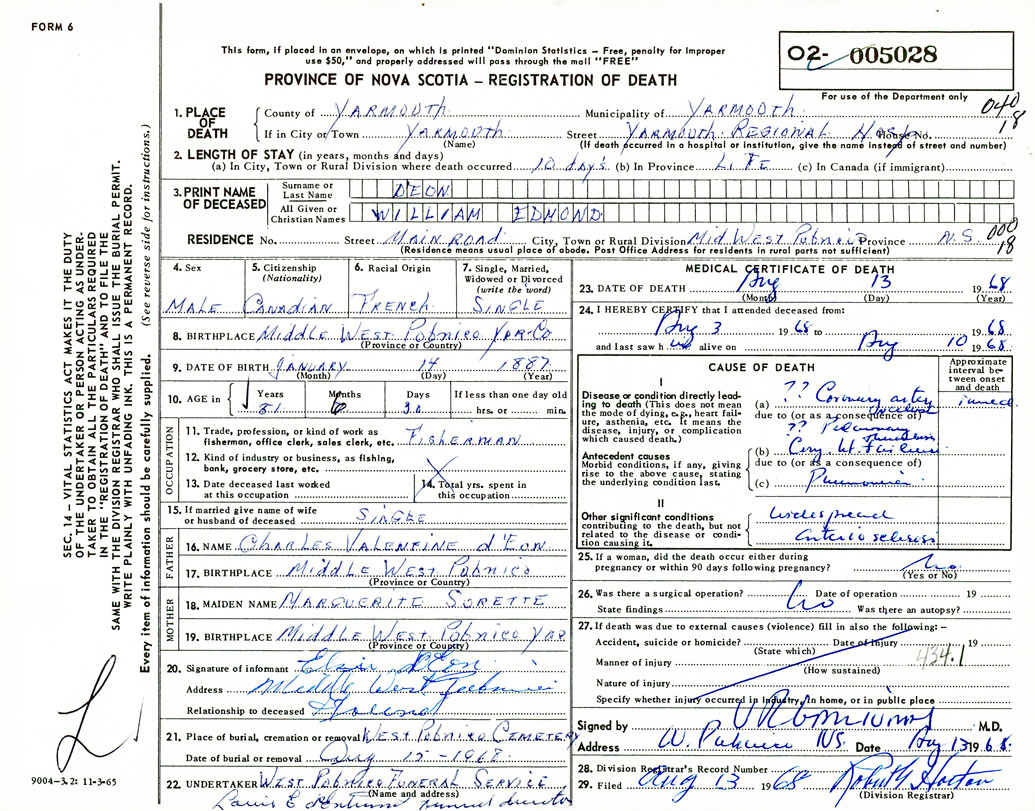 FORM 6
This form, if placed in an envelope, on which is printed "Dominion Statistics – Free, penalty for improper
use $50," and properly addressed will pass through the mail "FREE"
PROVINCE OF NOVA SCOTIA – REGISTRATION OF DEATH
02- 005028
For use of the Department only
040
18
1. PLACE OF DEATH
County of YARMOUTH Municipality of YARMOUTH
If in City or Town YARMOUTH Street YARMOUTH REGIONAL Hosp House No.
(Name) (If death occurred in a hospital or institution, give the name instead of street and number)
2. LENGTH OF STAY (in years, months and days)
(a) In City, Town or Rural Division where death occurred 10 days (b) In Province LIFE (c) In Canada (if immigrant)
3. PRINT NAME OF DECEASED
Surname or Last Name DEON
All Given or Christian Names WILLIAM EDMOND
RESIDENCE No. Street MAIN ROAD City, Town or Rural Division Mid West Pubnico Province N.S.
000
18
(Residence means usual place of abode. Post Office Address for residents in rural parts not sufficient)
4. Sex MALE
5. Citizenship (Nationality) Canadian
6. Racial Origin French
7. Single, Married, Widowed or Divorced (write the word) SINGLE
8. BIRTHPLACE Middle West Pubnico Yar Co
(Province or Country)
9. DATE OF BIRTH JANUARY 14 1887
(Month) (Day) (Year)
10. AGE in Years 81 Months 6 Days 30 If less than one day old hrs. or min.
OCCUPATION
11. Trade, profession, or kind of work as fisherman, office clerk, sales clerk, etc. FISHERMAN
12. Kind of industry or business, as fishing, bank, grocery store, etc.
13. Date deceased last worked at this occupation
14. Total yrs. spent in this occupation
15. If married give name of wife or husband of deceased SINGLE
FATHER
16. NAME Charles Valentine d'Eon
17. BIRTHPLACE Middle West Pubnico
(Province or Country)
MOTHER
18. MAIDEN NAME MARGUERITE SURETTE
19. BIRTHPLACE Middle West Pubnico Yar
(Province or Country)
20. Signature of informant Elzir d'Eon
Address Middle West Pubnico
Relationship to deceased
21. Place of burial, cremation or removal WEST PUBNICO CEMETERY
Date of burial or removal Aug 15 - 1968
22. UNDERTAKER WEST PUBNICO FUNERAL SERVICE
(Name and address)
Louis E d'Entremont funeral director
MEDICAL CERTIFICATE OF DEATH
23. DATE OF DEATH Aug 13 1968
(Month) (Day) (Year)
24. I HEREBY CERTIFY that I attended deceased from:
Aug 3 1968 to 1968
and last saw him alive on Aug 10 1968
CAUSE OF DEATH
Approximate interval between onset and death
I
Disease or condition directly leading to death (This does not mean the mode of dying, e.g., heart failure, asthenia, etc. It means the disease, injury, or complication which caused death.)
(a) ?? Coronary artery occlusion immed
due to (or as a consequence of)
?? Pulmonary Thrombosis
Antecedent causes
Morbid conditions, if any, giving rise to the above cause, stating the underlying condition last.
(b) Cong. Ht. Failure
due to (or as a consequence of)
(c) Pneumonia
II
Other significant conditions contributing to the death, but not related to the disease or condition causing it.
widespread
arteriosclerosis
25. If a woman, did the death occur either during pregnancy or within 90 days following pregnancy? no
(Yes or No)
26. Was there a surgical operation? no Date of operation 19
State findings Was there an autopsy?
27. If death was due to external causes (violence) fill in also the following:–
Accident, suicide or homicide? Date of injury 19
(State which)
434.1
Manner of injury
(How sustained)
Nature of injury
Specify whether injury occurred in industry, in home, or in public place
Signed by M.D.
Address W. Pubnico N.S. Date Aug 13 1968
28. Division Registrar's Record Number
29. Filed Aug 13 1968 Robert Horton
(Division Registrar)
SEC. 14 – VITAL STATISTICS ACT MAKES IT THE DUTY
OF THE UNDERTAKER OR PERSON ACTING AS UNDER-
TAKER TO OBTAIN ALL THE PARTICULARS REQUIRED
IN THE "REGISTRATION OF DEATH" AND TO FILE THE
SAME WITH THE DIVISION REGISTRAR WHO SHALL ISSUE THE BURIAL PERMIT.
WRITE PLAINLY WITH UNFADING INK. THIS IS A PERMANENT RECORD.
Every item of information should be carefully supplied. (See reverse side for instructions.)
9004–3.2: 11-3-65